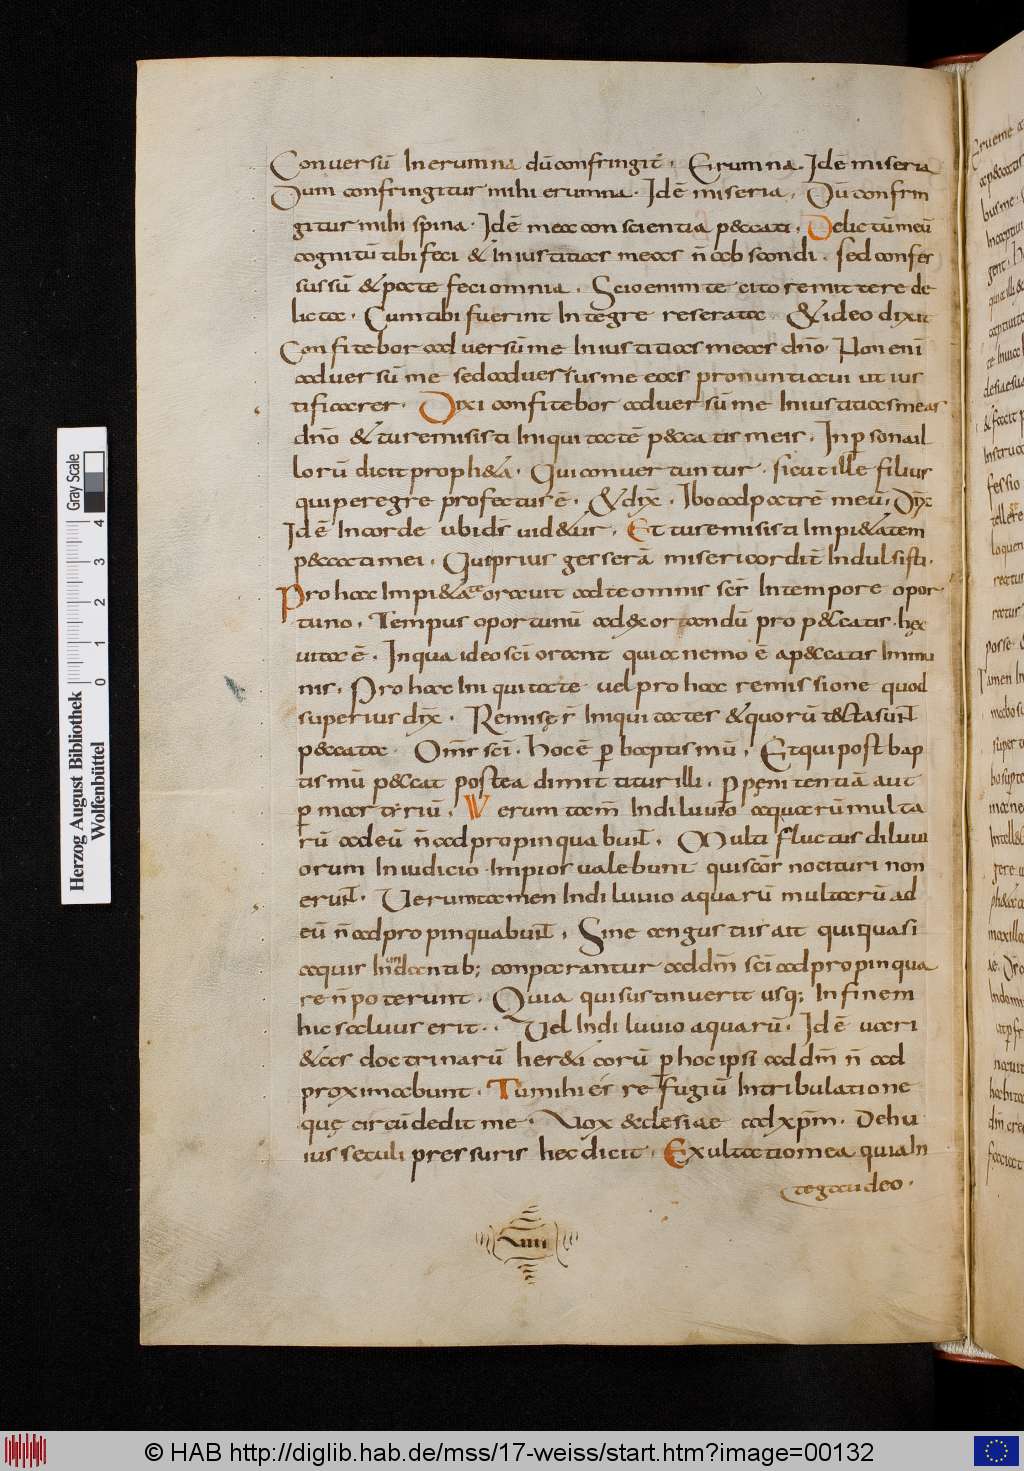 Conuersū In erumna dū confringit̄. Erumna. Idē miseria
Dum confringitur mihi erumna. Idē miseria. Dū confrin
gitur mihi spina. Idē mea conscientia peccati. Delictū meū
cognitū tibi feci & Iniustitias meas n̄ abscondi. sed confes
sus sū & pate feci omnia. Scio enim te cito remittere de
licta. Cum tibi fuerint Integre reserata & ideo dixit
Confitebor aduersū me Iniustitias meas dn̄o Non enī
aduersū me sed aduersus me eas pronuntiaui ut ius
tificarer. Dixi confitebor aduersū me Iniustitias meas
dn̄o & tu remisisti Iniquitatē peccatis meis. In persona il
lorū dicit proph&a. Qui conuertuntur. sicut ille filius
qui peregre profectus ē. & dix̄. Ibo ad patrē meū. Dix̄
Idē In corde ubi dr̄ uid&ur. Et tu remisisti Impi&atem
peccati mei. Qui prius gesserā misericordit̄ Indulsisti.
Pro hac Impi&ate orauit ad te omnis sc̄s In tempore opor
tuno. Tempus oportunū ad exorandū pro peccatis. hęc
uita ē. In qua ideo sc̄i orant quia nemo ē a peccatis Immu
nis. Pro hac Iniquitate uel pro hac remissione quod
superius dix̄. Iniquitates & quorū tecta sunt
peccata. Om̄s sc̄i. hoc ē p baptismū. Et qui post bap
tismū peccat postea dimittitur illi. p pęnitentiā aut
p martyriū. Verum tam̄ In diluuio aquarū multa
rū ad eū n̄ adpropinquabunt. Multi fluctus diluui
orum In iudicio Impios ualebunt qui sc̄or nocituri non
erunt. Uerumtamen In diluuio aquarū multarū ad
eū n̄ adpropinquabunt. Sine angustus ait qui quasi
aquis Inundantib; conparantur ad dm̄ sc̄i adpropinqua
re n̄ poterunt. Quia qui sustinuerit usq; In finem
hic saluus erit. Vel In diluuio aquarū. Idē uari
&as doctrinarū her&icorū p hoc ipsi ad dm̄ n̄ ad
proximabunt. Tu mihi es refugiū In tribulatione
quę circūdedit me. Vox ecclesiae ad xp̄m. De hu
ius seculi pressuris hec dicit. Exultatio mea quia In
te gaudeo.
VIIII
Herzog August Bibliothek
Wolfenbüttel
Gray Scale
0 1 2 3 4
© HAB http://diglib.hab.de/mss/17-weiss/start.htm?image=00132